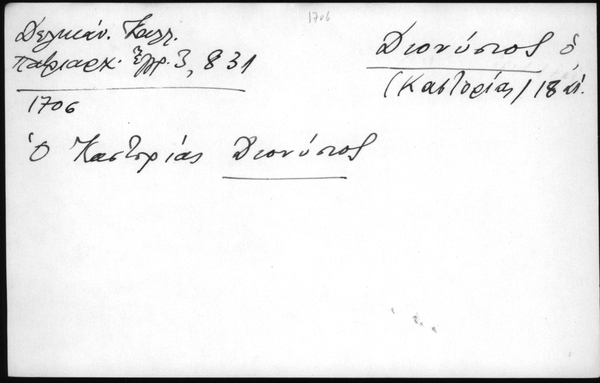 1706
Δεληκάν. Καλλ.
Πατριαρχ. Ἔγγρ. 3, 831
1706
Διονύσιος ὁ
(Καστορίας) 18 αἰ.
ὁ Καστορίας Διονύσιος